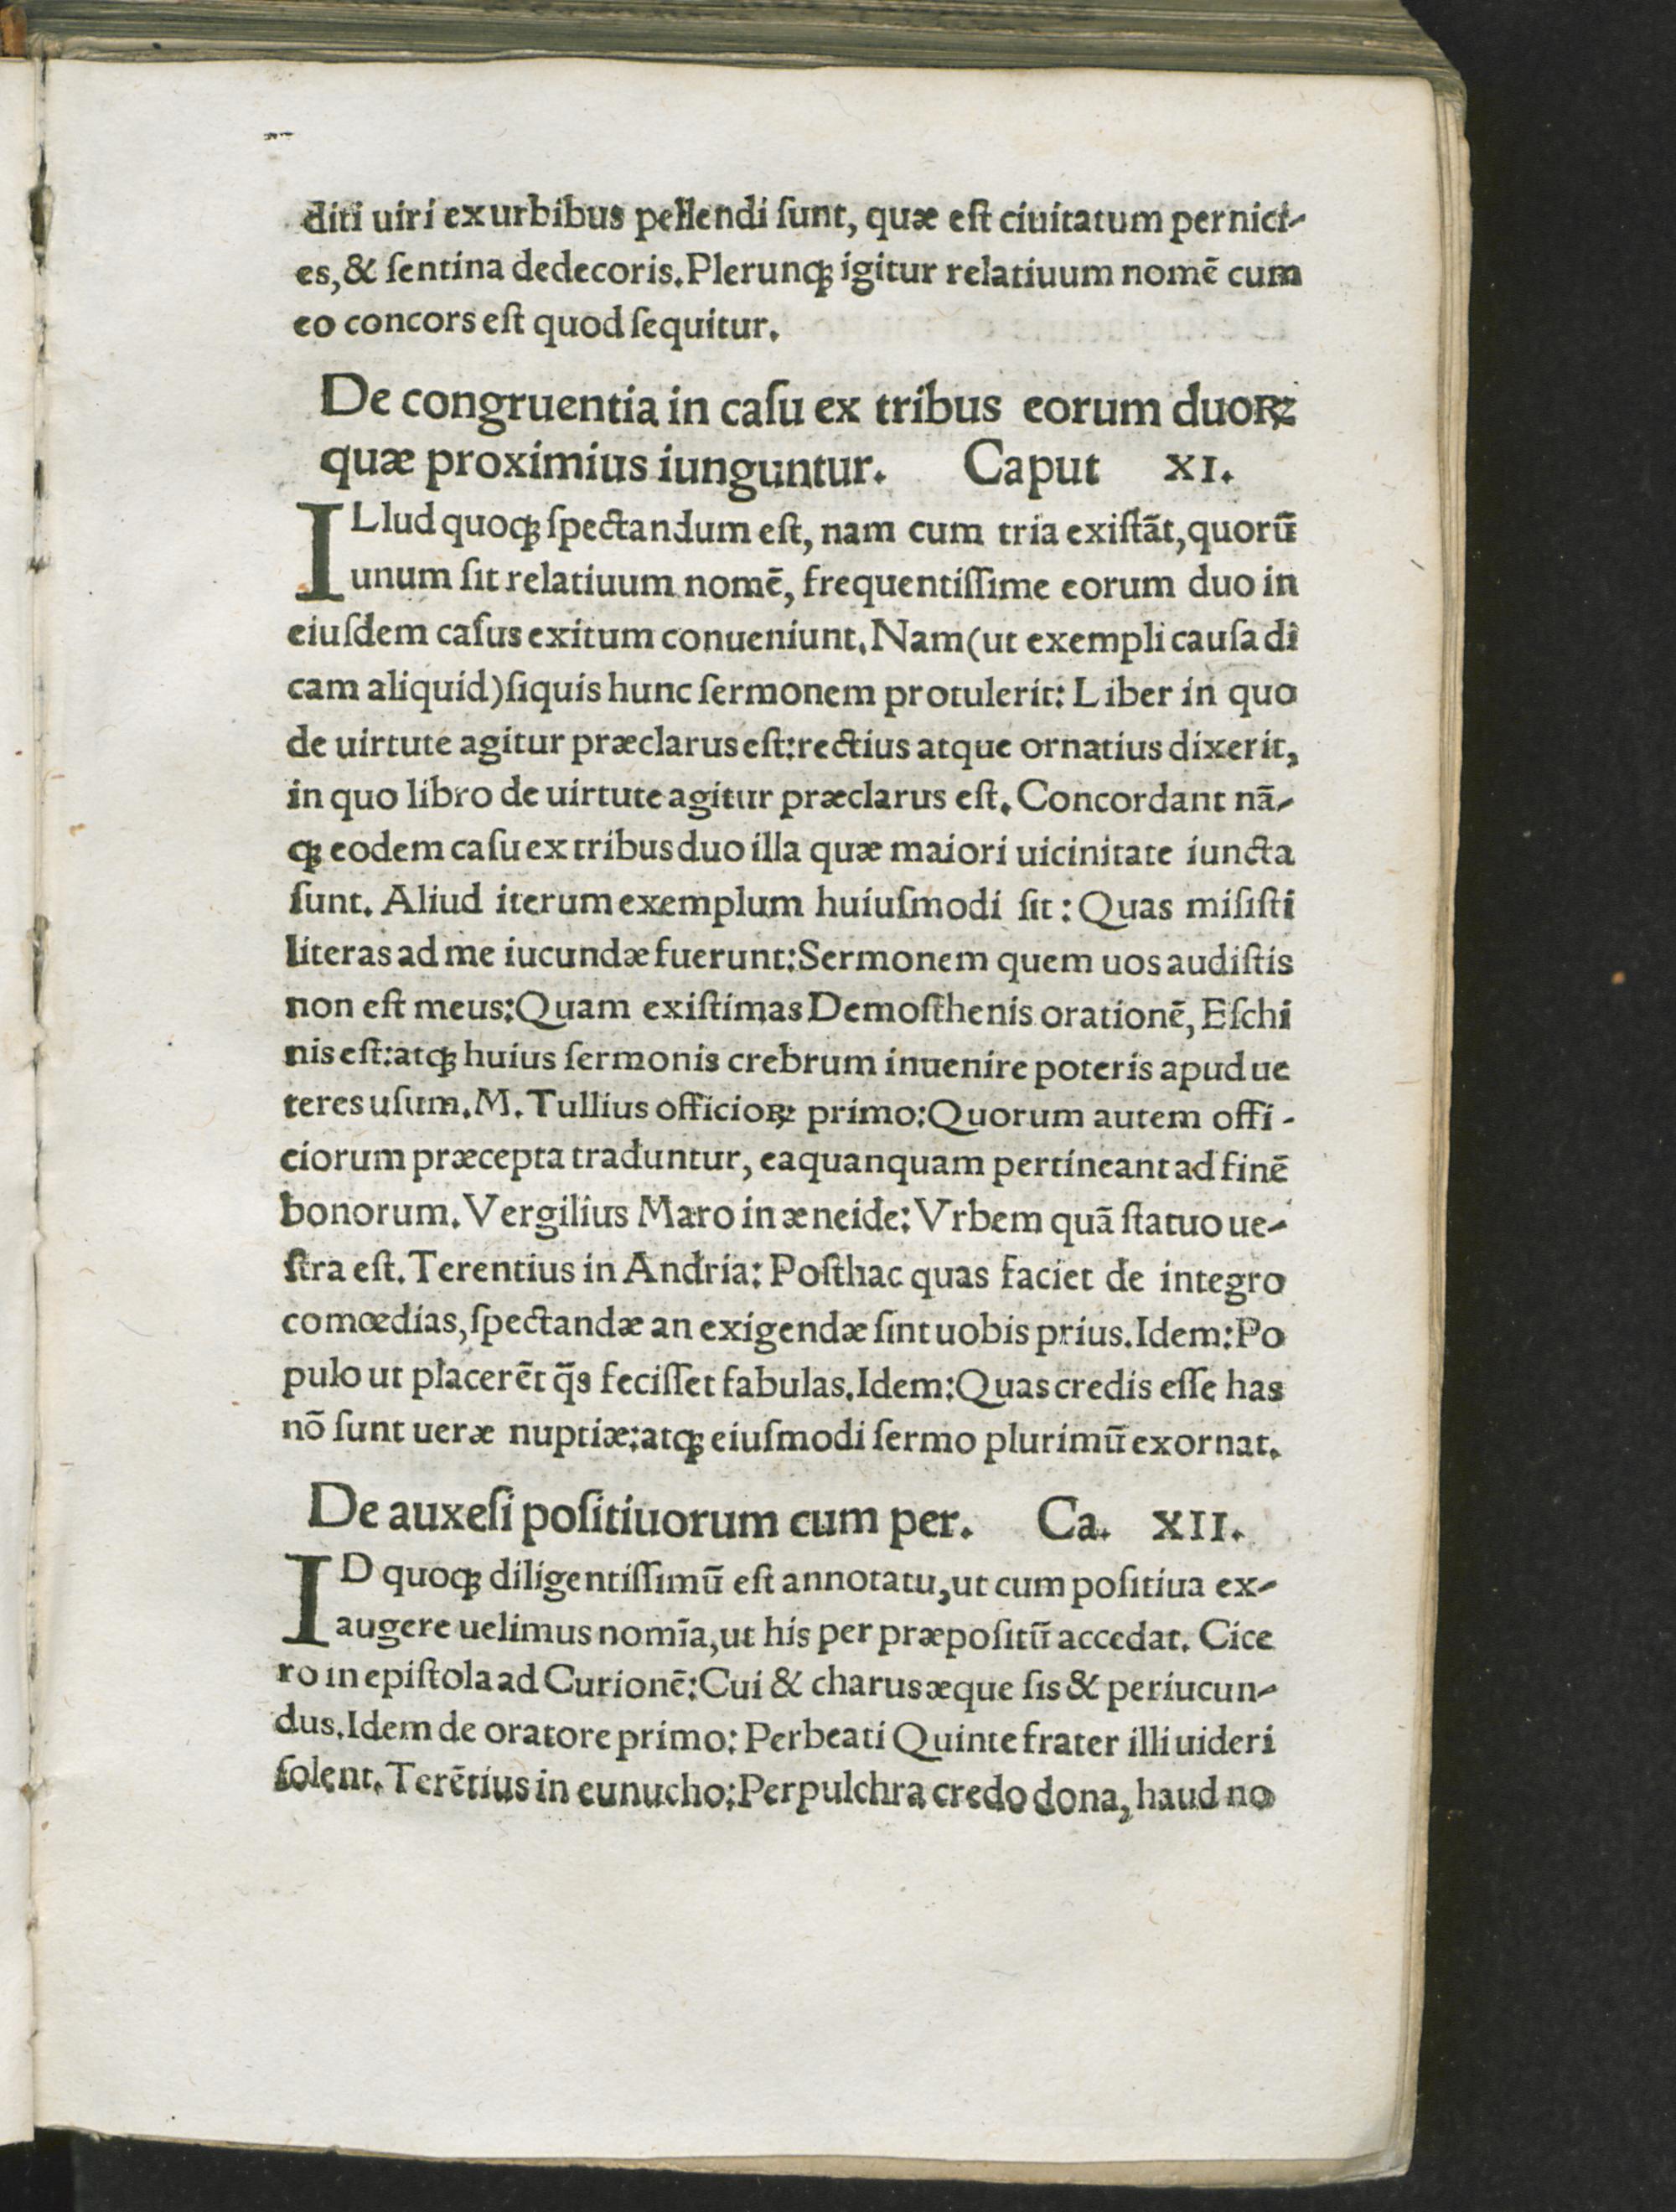 diti uiri ex urbibus pellendi ſunt, quæ eſt ciuitatum pernici-
es, & ſentina dedecoris. Plerunqꝫ igitur relatiuum nomē cum
eo concors eſt quod ſequitur.
De congruentia in caſu ex tribus eorum duoꝝ
quæ proximius iunguntur. Caput XI.
ILlud quoqꝫ ſpectandum eſt, nam cum tria exiſtāt, quorū
unum ſit relatiuum nomē, frequentiſſime eorum duo in
eiuſdem caſus exitum conueniunt. Nam (ut exempli cauſa di
cam aliquid) ſiquis hunc ſermonem protulerit: Liber in quo
de uirtute agitur præclarus eſt: rectius atque ornatius dixerit,
in quo libro de uirtute agitur præclarus eſt. Concordant nā-
qꝫ eodem caſu ex tribus duo illa quæ maiori uicinitate iuncta
ſunt. Aliud iterum exemplum huiuſmodi ſit: Quas miſiſti
literas ad me iucundæ fuerunt: Sermonem quem uos audiſtis
non eſt meus: Quam exiſtimas Demoſthenis orationē, Eſchi
nis eſt: atqꝫ huius ſermonis crebrum inuenire poteris apud ue
teres uſum. M. Tullius officioꝝ primo: Quorum autem offi-
ciorum præcepta traduntur, ea quanquam pertineant ad finē
bonorum. Vergilius Maro in æneide: Vrbem quā ſtatuo ue-
ſtra eſt. Terentius in Andria: Poſthac quas faciet de integro
comœdias, ſpectandæ an exigendæ ſint uobis prius. Idem: Po
pulo ut placerēt q̄s feciſſet fabulas. Idem: Quas credis eſſe has
nō ſunt ueræ nuptiæ: atqꝫ eiuſmodi ſermo plurimū exornat.
De auxeſi poſitiuorum cum per. Ca. XII.
ID quoqꝫ diligentiſſimū eſt annotatu, ut cum poſitiua ex-
augere uelimus nomīa, ut his per præpoſitū accedat. Cice
ro in epiſtola ad Curionē: Cui & charus æque ſis & periucun-
dus. Idem de oratore primo: Perbeati Quinte frater illi uideri
ſolent. Terētius in eunucho: Perpulchra credo dona, haud no